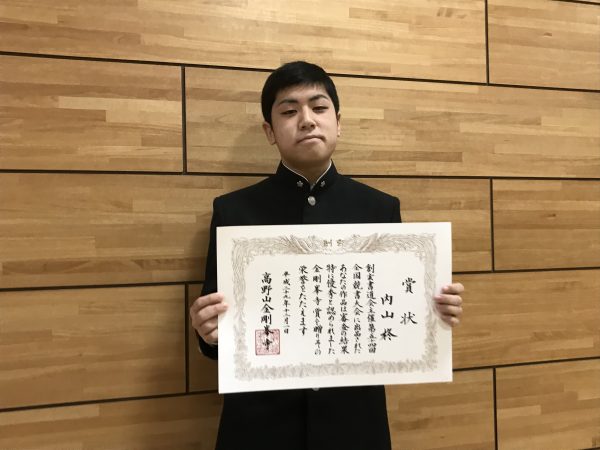 創玄
賞状
内山柊
創玄書道会主催第五十四回
全国競書大会に出品された
あなたの作品は審査の結果
特に優秀と認められました
金剛峯寺賞を贈りその
栄誉をたたえます
平成二十九年十二月一日
高野山金剛峯寺